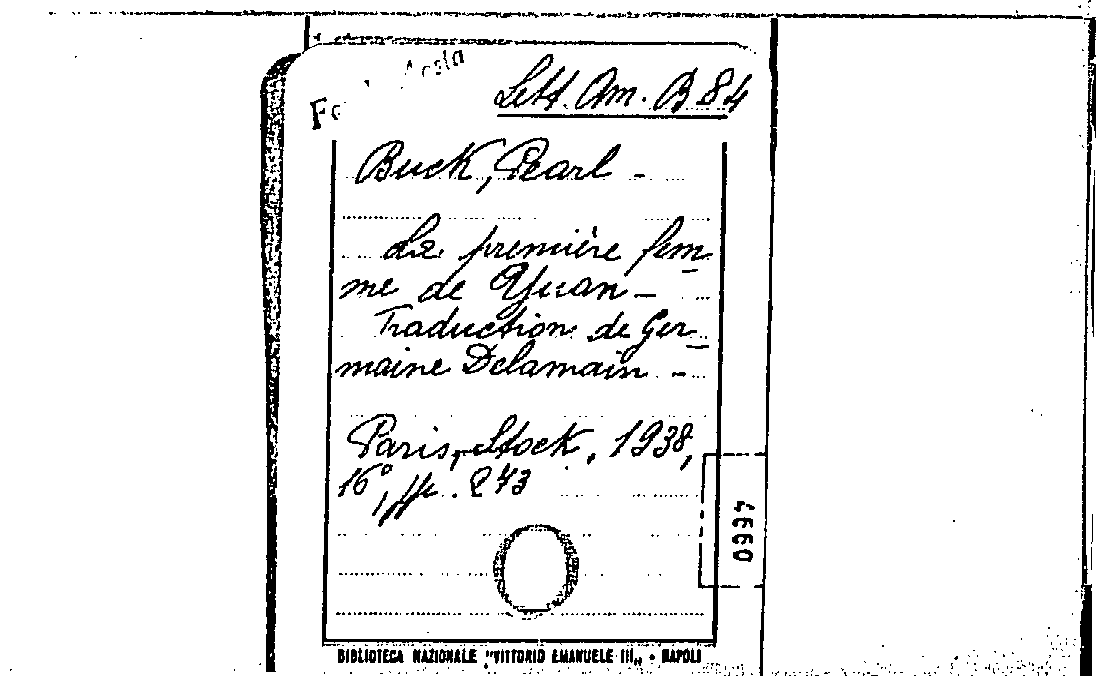 Lett. Am. B 84
Buck, Pearl -
La première fem-
me de Yuan -
Traduction de Ger-
maine Delamain -
Paris, Stock, 1938,
16°, pp. 273
0994
BIBLIOTECA NAZIONALE "VITTORIO EMANUELE III„ - NAPOLI